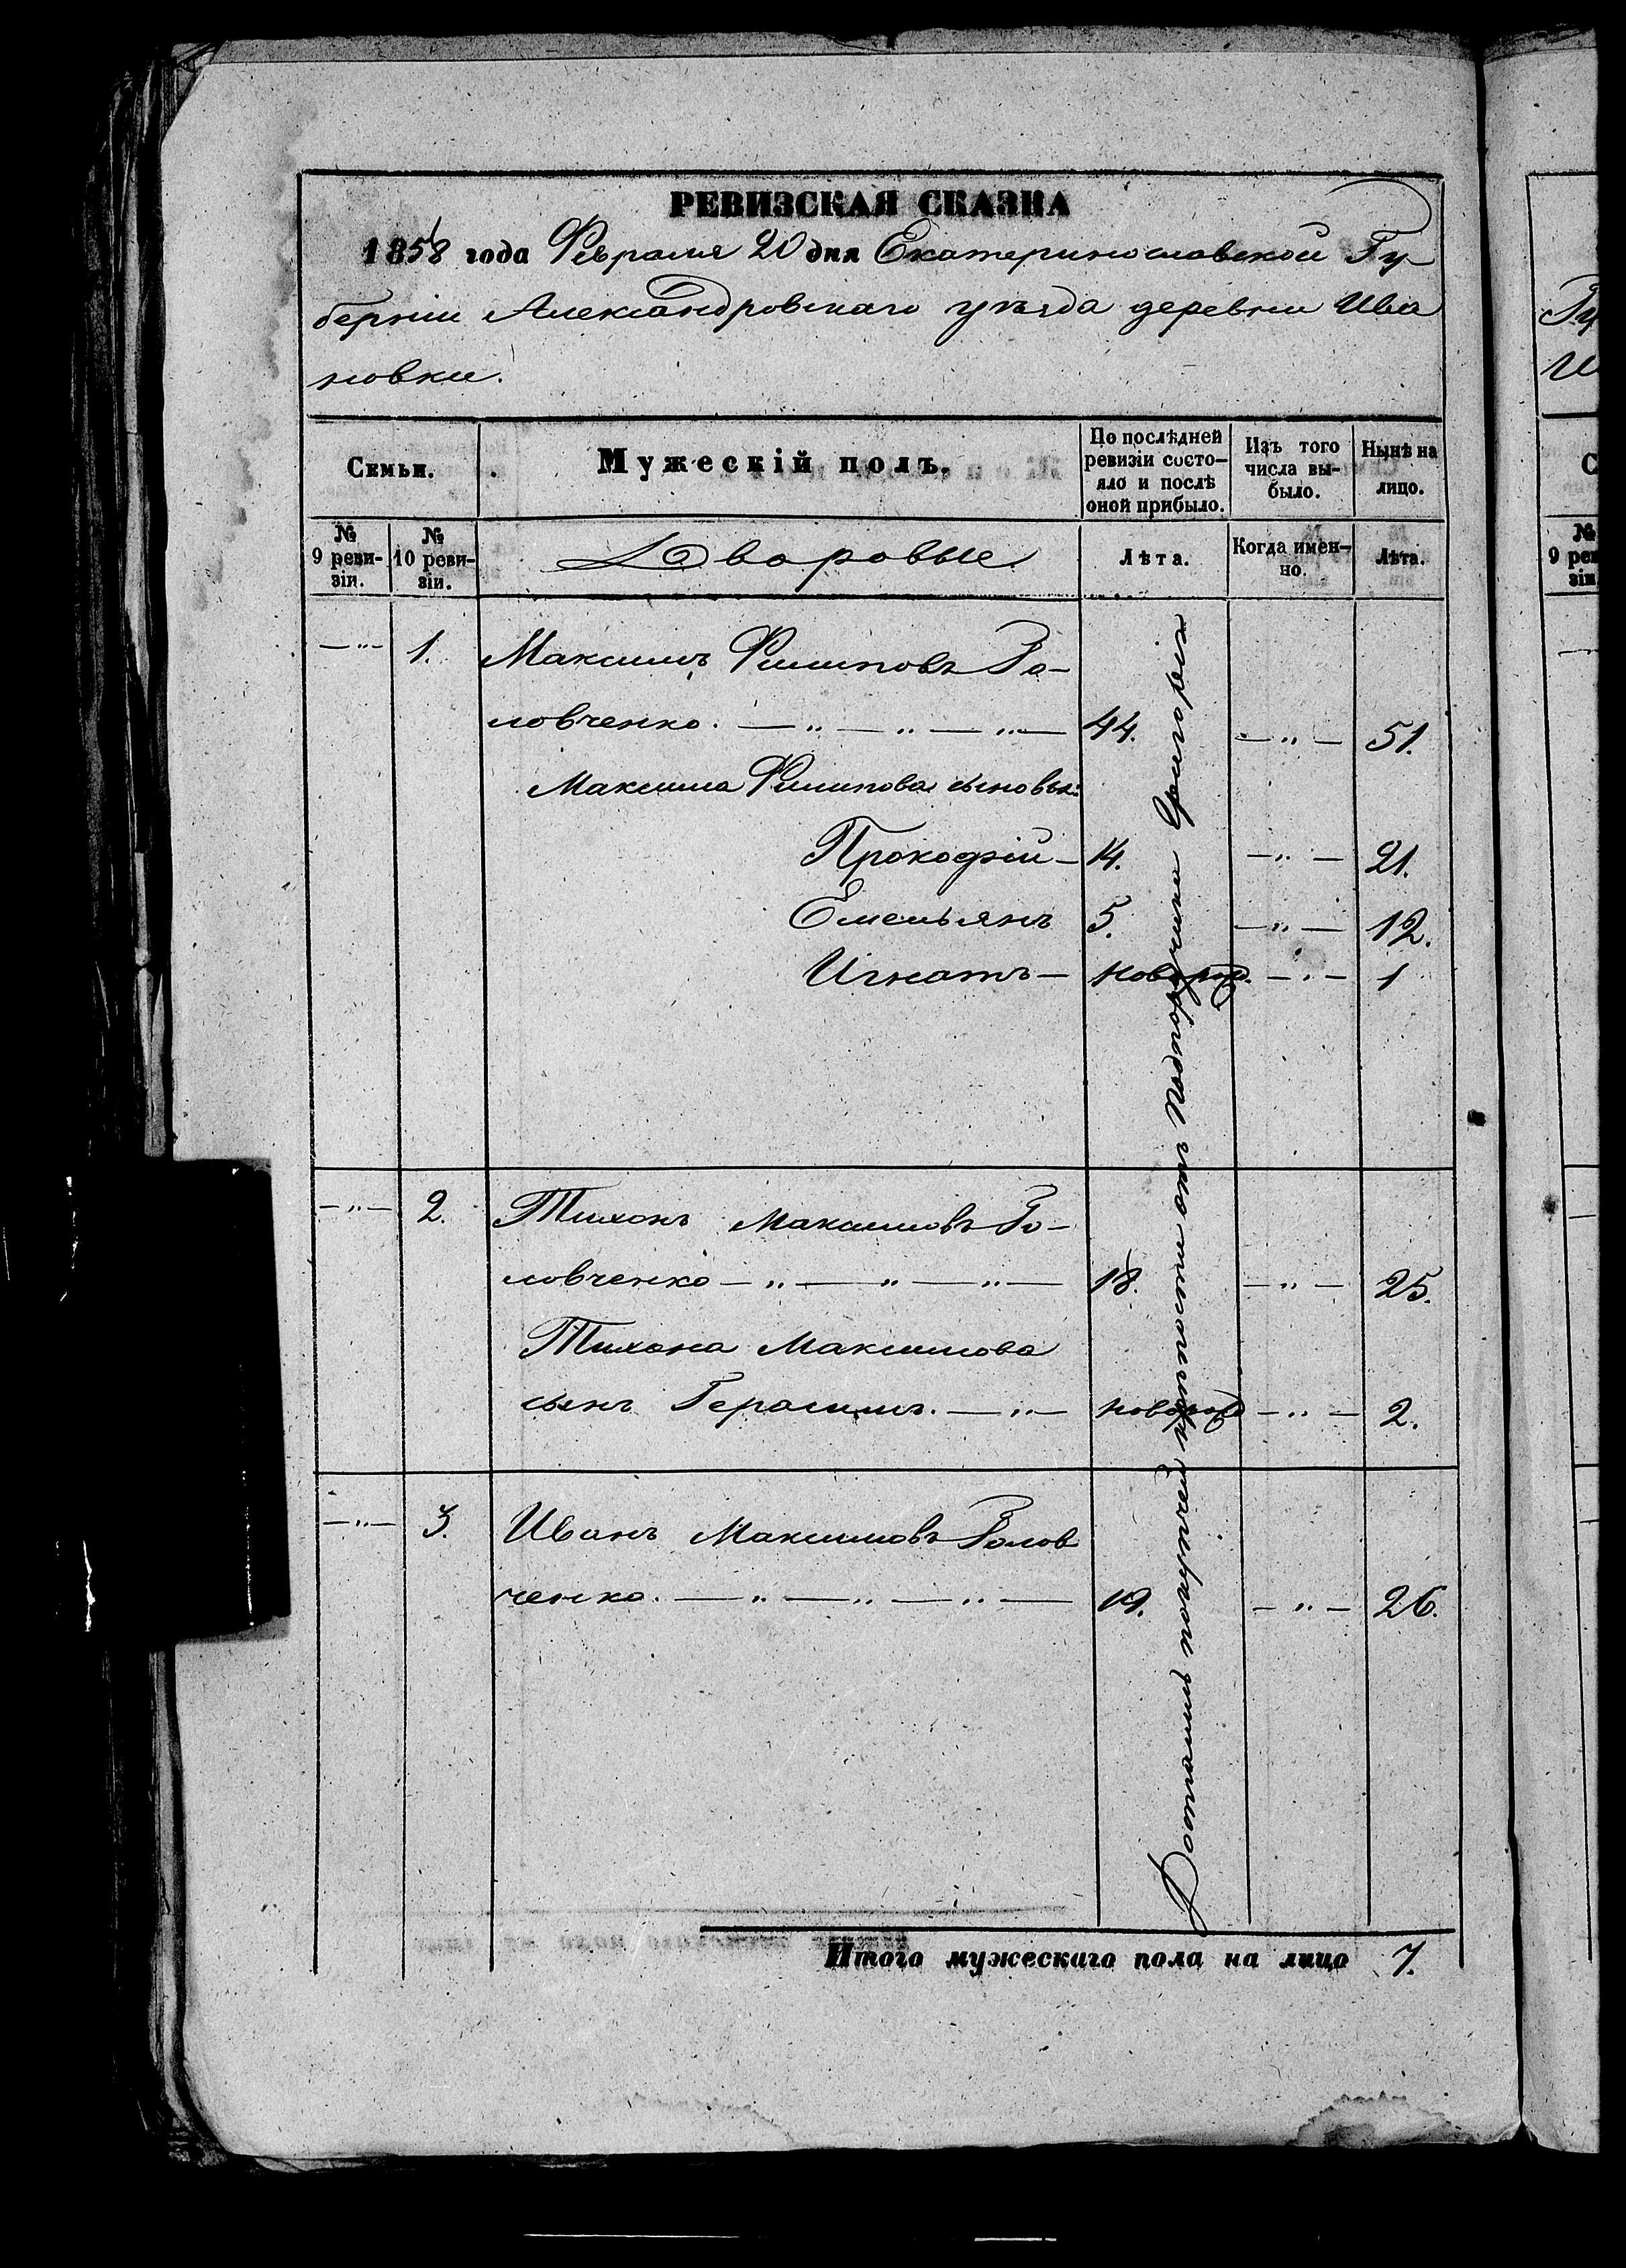 РЕВИЗСКАЯ СКАЗКА
1858 года Февраля 20 дня Екатеринославской Гу-
берніи Александровскаго уѣзда деревни Ива
новки.
Семьи.
Мужескій полъ.
По послѣдней ревизіи состо-яло и послѣ оной прибыло.
Изъ того числа вы-было.
Нынѣ на лицо.
№ 9 реви-зіи.
№ 10 реви-зіи.
Дворовые
Лѣта.
Когда имен-но.
Лѣта.
—"— 1. Максимъ Филиповъ Го-
ловченко. — " — " — " — 44. — " — 51.
Максима Филипова сыновья:
Прокофій — 14. — " — 21.
Емельянъ 5. — " — 12.
Игнатъ — новорож. — " — 1
—"— 2. Тихонъ Максимовъ Го-
ловченко — " — " — " — 18. — " — 25.
Тихона Максимова
сынъ Герасимъ. — " — новорож — " — 2.
—"— 3. Иванъ Максимовъ Голов
ченко. — " — " — " — 19. — " — 26.
Достались покупкой отъ Подпоручика Григорія
Итого мужескаго пола на лицо 7.
Гу
И
С
№
9 рев
зіи